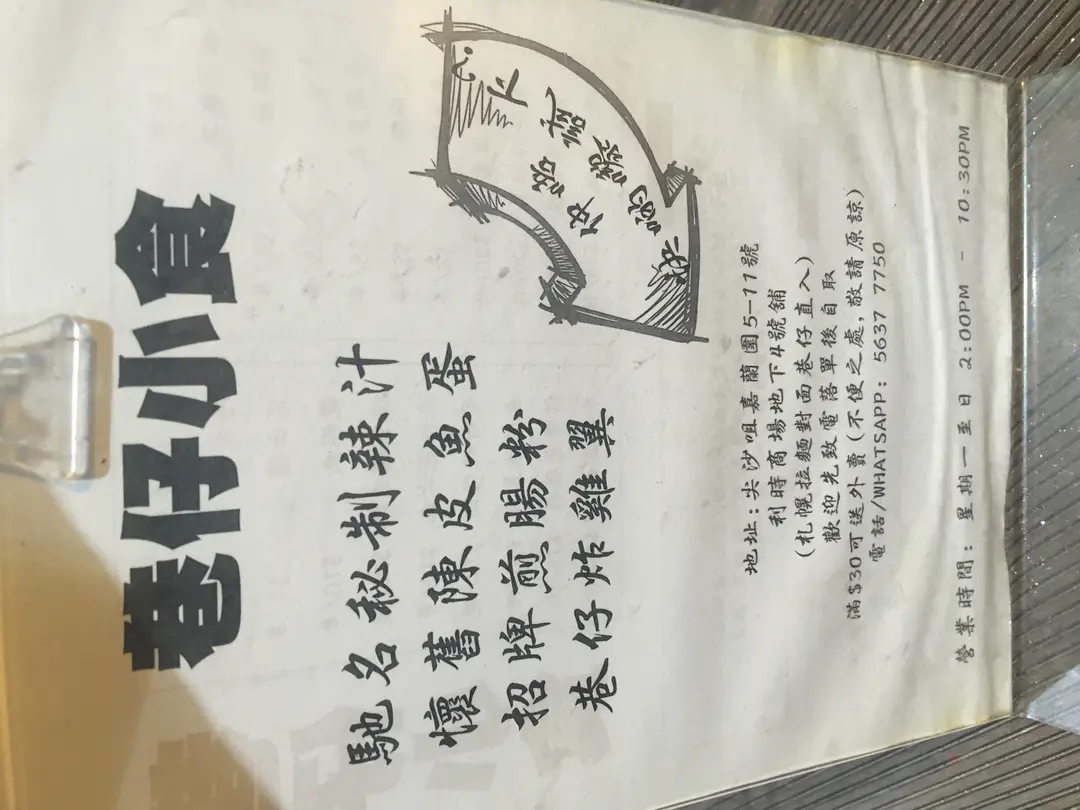 巷仔小食
馳名秘制辣汁
懷舊陳皮魚蛋
招牌煎腸粉
巷仔炸雞翼
地址:尖沙咀嘉蘭圍5-11號
利時商場地下4號舖
(札幌拉麵對面巷仔直入)
歡迎先致電落單後自取
滿$30可送外賣(不便之處,敬請原諒)
電話/WHATSAPP: 5637 7750
營業時間: 星期一至日 2:00PM - 10:30PM